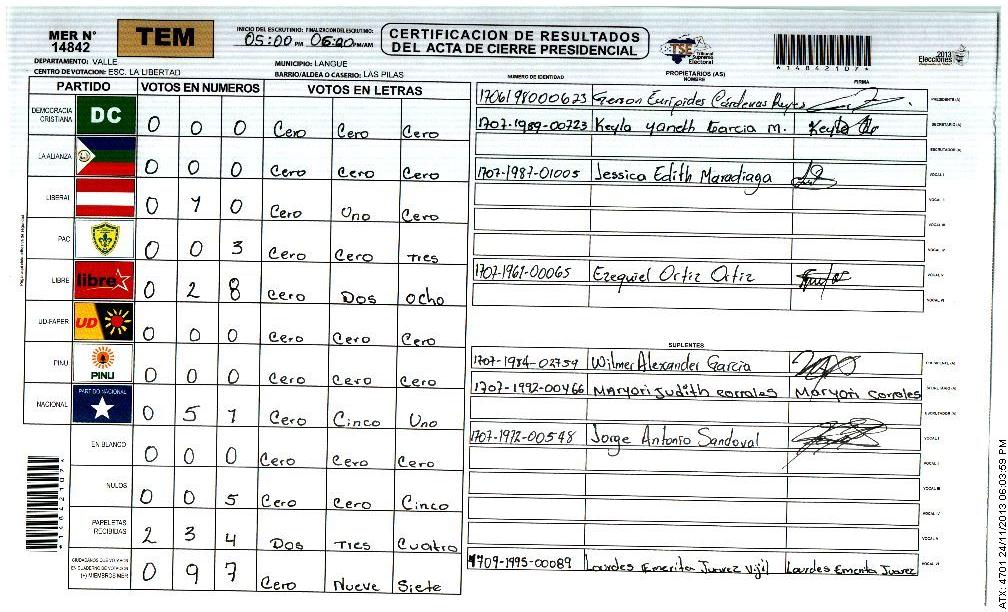 MER N° 14842
TEM
INICIO DEL ESCRUTINIO: 05:00 PM
FINALIZACION DEL ESCRUTINIO: 06:20 PM/AM
CERTIFICACION DE RESULTADOS DEL ACTA DE CIERRE PRESIDENCIAL
TSE Tribunal Supremo Electoral
*14842107*
2013 Elecciones
DEPARTAMENTO: VALLE
MUNICIPIO: LANGUE
CENTRO DE VOTACION: ESC. LA LIBERTAD
BARRIO/ALDEA O CASERIO: LAS PILAS
PARTIDO VOTOS EN NUMEROS VOTOS EN LETRAS
DEMOCRACIA CRISTIANA DC 0 0 0 Cero Cero Cero
LA ALIANZA 0 0 0 Cero Cero Cero
LIBERAL 0 1 0 Cero Uno Cero
PAC 0 0 3 Cero Cero Tres
LIBRE libre 0 2 8 Cero Dos Ocho
UD-FAPER UD 0 0 0 Cero Cero Cero
PINU PINU 0 0 0 Cero Cero Cero
NACIONAL PARTIDO NACIONAL 0 5 1 Cero Cinco Uno
EN BLANCO 0 0 0 Cero Cero Cero
NULOS 0 0 5 Cero Cero Cinco
PAPELETAS RECIBIDAS 2 3 4 Dos Tres Cuatro
CIUDADANOS QUE VOTARON EN CUADERNO DE VOTACION (+) MIEMBROS MER 0 9 7 Cero Nueve Siete
*14842107*
PROPIETARIOS (AS)
NUMERO DE IDENTIDAD NOMBRE FIRMA
1706198000623 Gerson Eurípides Cárdenas Reyes PRESIDENTE (A)
1707-1989-00723 Keyla Yaneth Garcia M. SECRETARIO (A)
ESCRUTADOR (A)
1707-1987-01005 Jessica Edith Maradiaga VOCAL I
VOCAL II
VOCAL III
VOCAL IV
1707-1961-00065 Ezequiel Ortiz Ortiz VOCAL V
VOCAL VI
SUPLENTES
1707-1984-02759 Wilmer Alexander Garcia PRESIDENTE (A)
1707-1992-00466 Maryori Judith corrales Maryori corrales SECRETARIO (A)
ESCRUTADOR (A)
1707-1972-00548 Jorge Antonio Sandoval VOCAL I
VOCAL II
VOCAL III
VOCAL IV
VOCAL V
1709-1995-00089 Lourdes Emerita Juarez Vijil Lourdes Emerita Juarez VOCAL VI
ATX: 4701 24/11/2013 06:03:59 PM